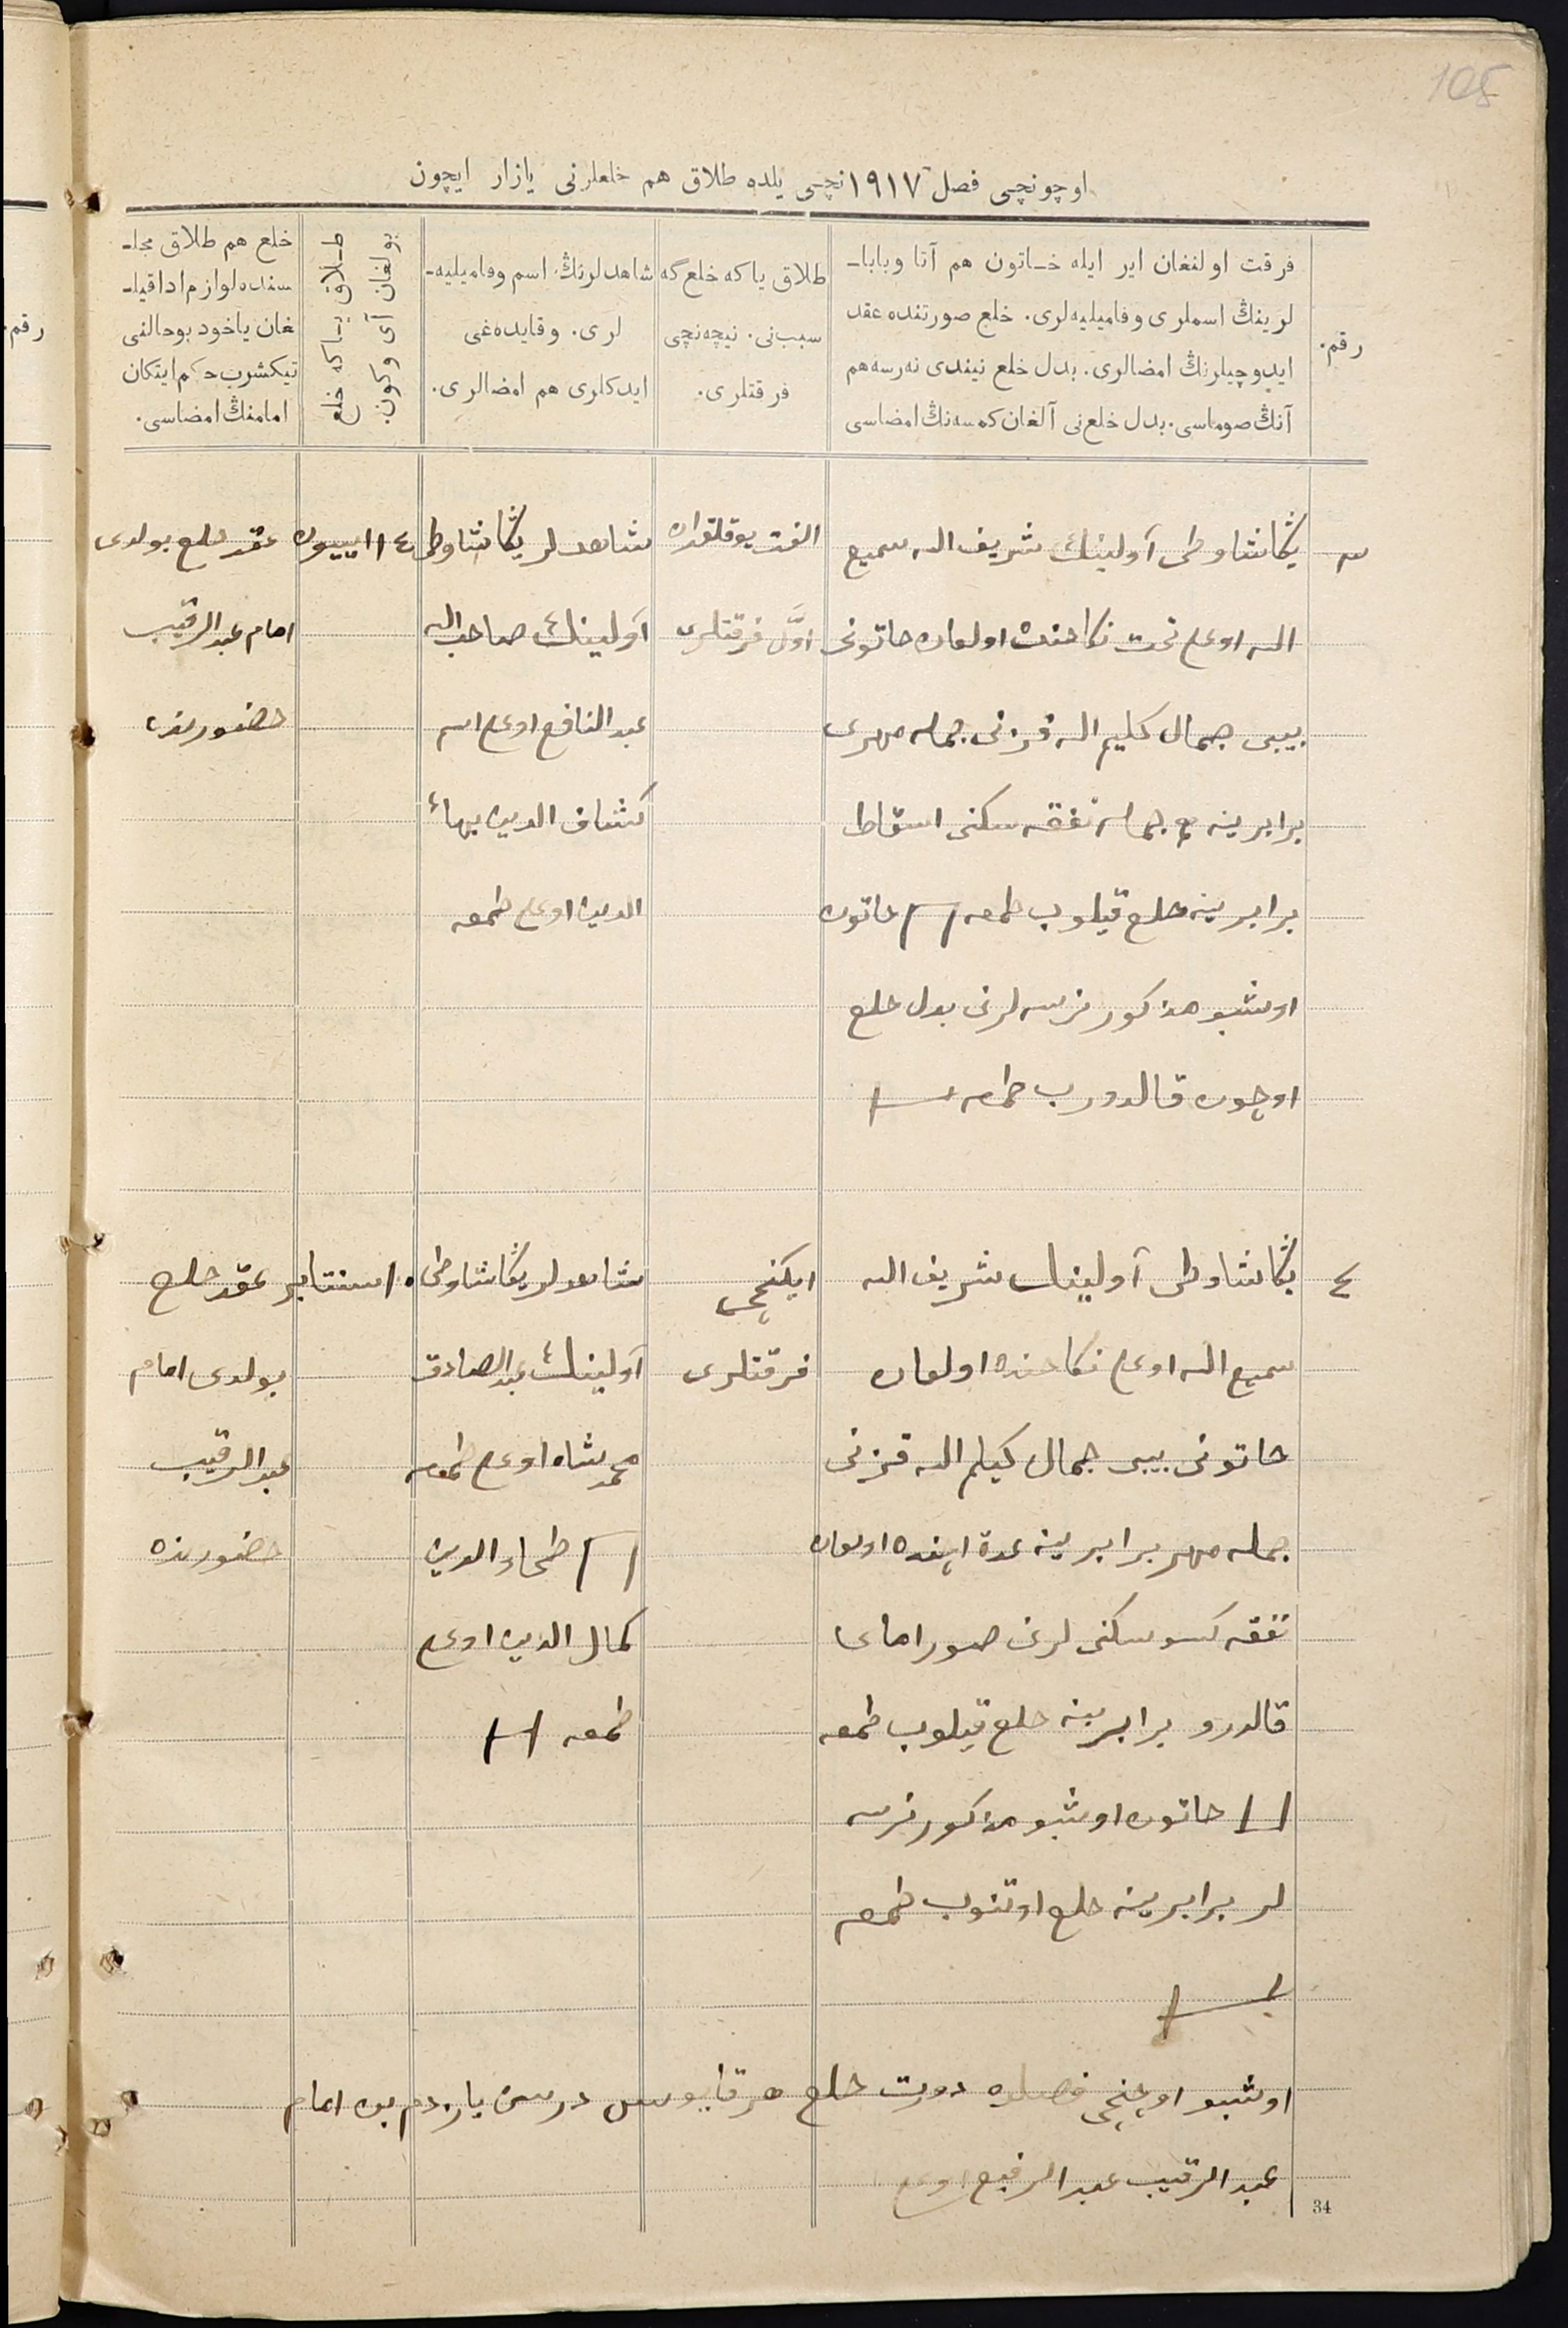 105
اوچونچی فصل ١٩١٧ نچی یلده طلاق هم خلعلرنی یازار ایچون
رقم.
فرقت اولنغان ایر ایله خـاتون هم آتا وبابا-
لرینڭ اسملری وفامیلیه‌لری. خلع صورتنده عقد
ایدوچیلرنڭ امضالری. بدل خلع نیندی نه‌رسه هم
آنڭ صوماسی. بدل خلع‌نی آلغان کمسه‌نڭ امضاسی
طلاق یاکه خلع گه
سبب‌نی. نیچه‌نچی
فرقتلری.
شاهدلرنڭ اسم وفامیلیه-
لری. وقایده‌غی
ایدکلری هم امضالری.
طـلاق یـاکه خلع
بولغان آی وکون.
خلع هم طلاق مجلـ
سنده لوازم ادا قیلـ
غان یاخود بوحالنی
تیکشرب حکم ایتکان
امامنڭ امضاسی.
رقم.
٣
یڭاشاوطی آولینڭ شریف الله سمیع
الله اوغلی تحت نکاحنده اولغان خاتونی
بیبی جمال کلیم الله قزنی جمله مهری
برابرینه مع جمله نفقه سکنی اسقاط
برابرینه خلع قیلوب طمعه خاتون
اوشبو مذکور نرسه‌لرنی بدل خلع
اوچون قالدورب طمعه
الفت یوقلقدان
اوّل فرقتلری
شاهدلر یڭاشاوطی
آولینڭ صاحب الله
عبد النافع اوغلی اسه
کشاف الدین بهاء
الدین اوغلی طمعه
١٤ ایییون
عقد خلع بولدی
امام عبد الرقیب
حضورنده
٤
یڭاشاوطی آولینڭ شریف الله
سمیع الله اوغلی نکاحنده اولغان
خاتونی بیبی جمال کلیم الله قزنی
جمله مهر برابرینه عدة ایچنده اولغان
نفقه کسو سکنی لرنی صوراماغا
قالدرو برابرینه خلع قیلوب طمعه
خاتون اوشبو مذکور نرسه
لر برابرینه خلع اوتنوب طمعه
ایکنچی
فرقتلری
شاهدلر یڭاشاوطی
آولینڭ عبد الصادق
محمدشاه اوغلی طمعه
ضحاء الدین
کمال الدین اوغلی
طمعه
١٠ سنتابر
عقد خلع
بولدی امام
عبد الرقیب
حضورنده
اوشبو اوچنچی فصلده دورت خلع هرقایوسی درست یازدم بن امام
عبد الرقیب عبد الرفیع اوغلی
34